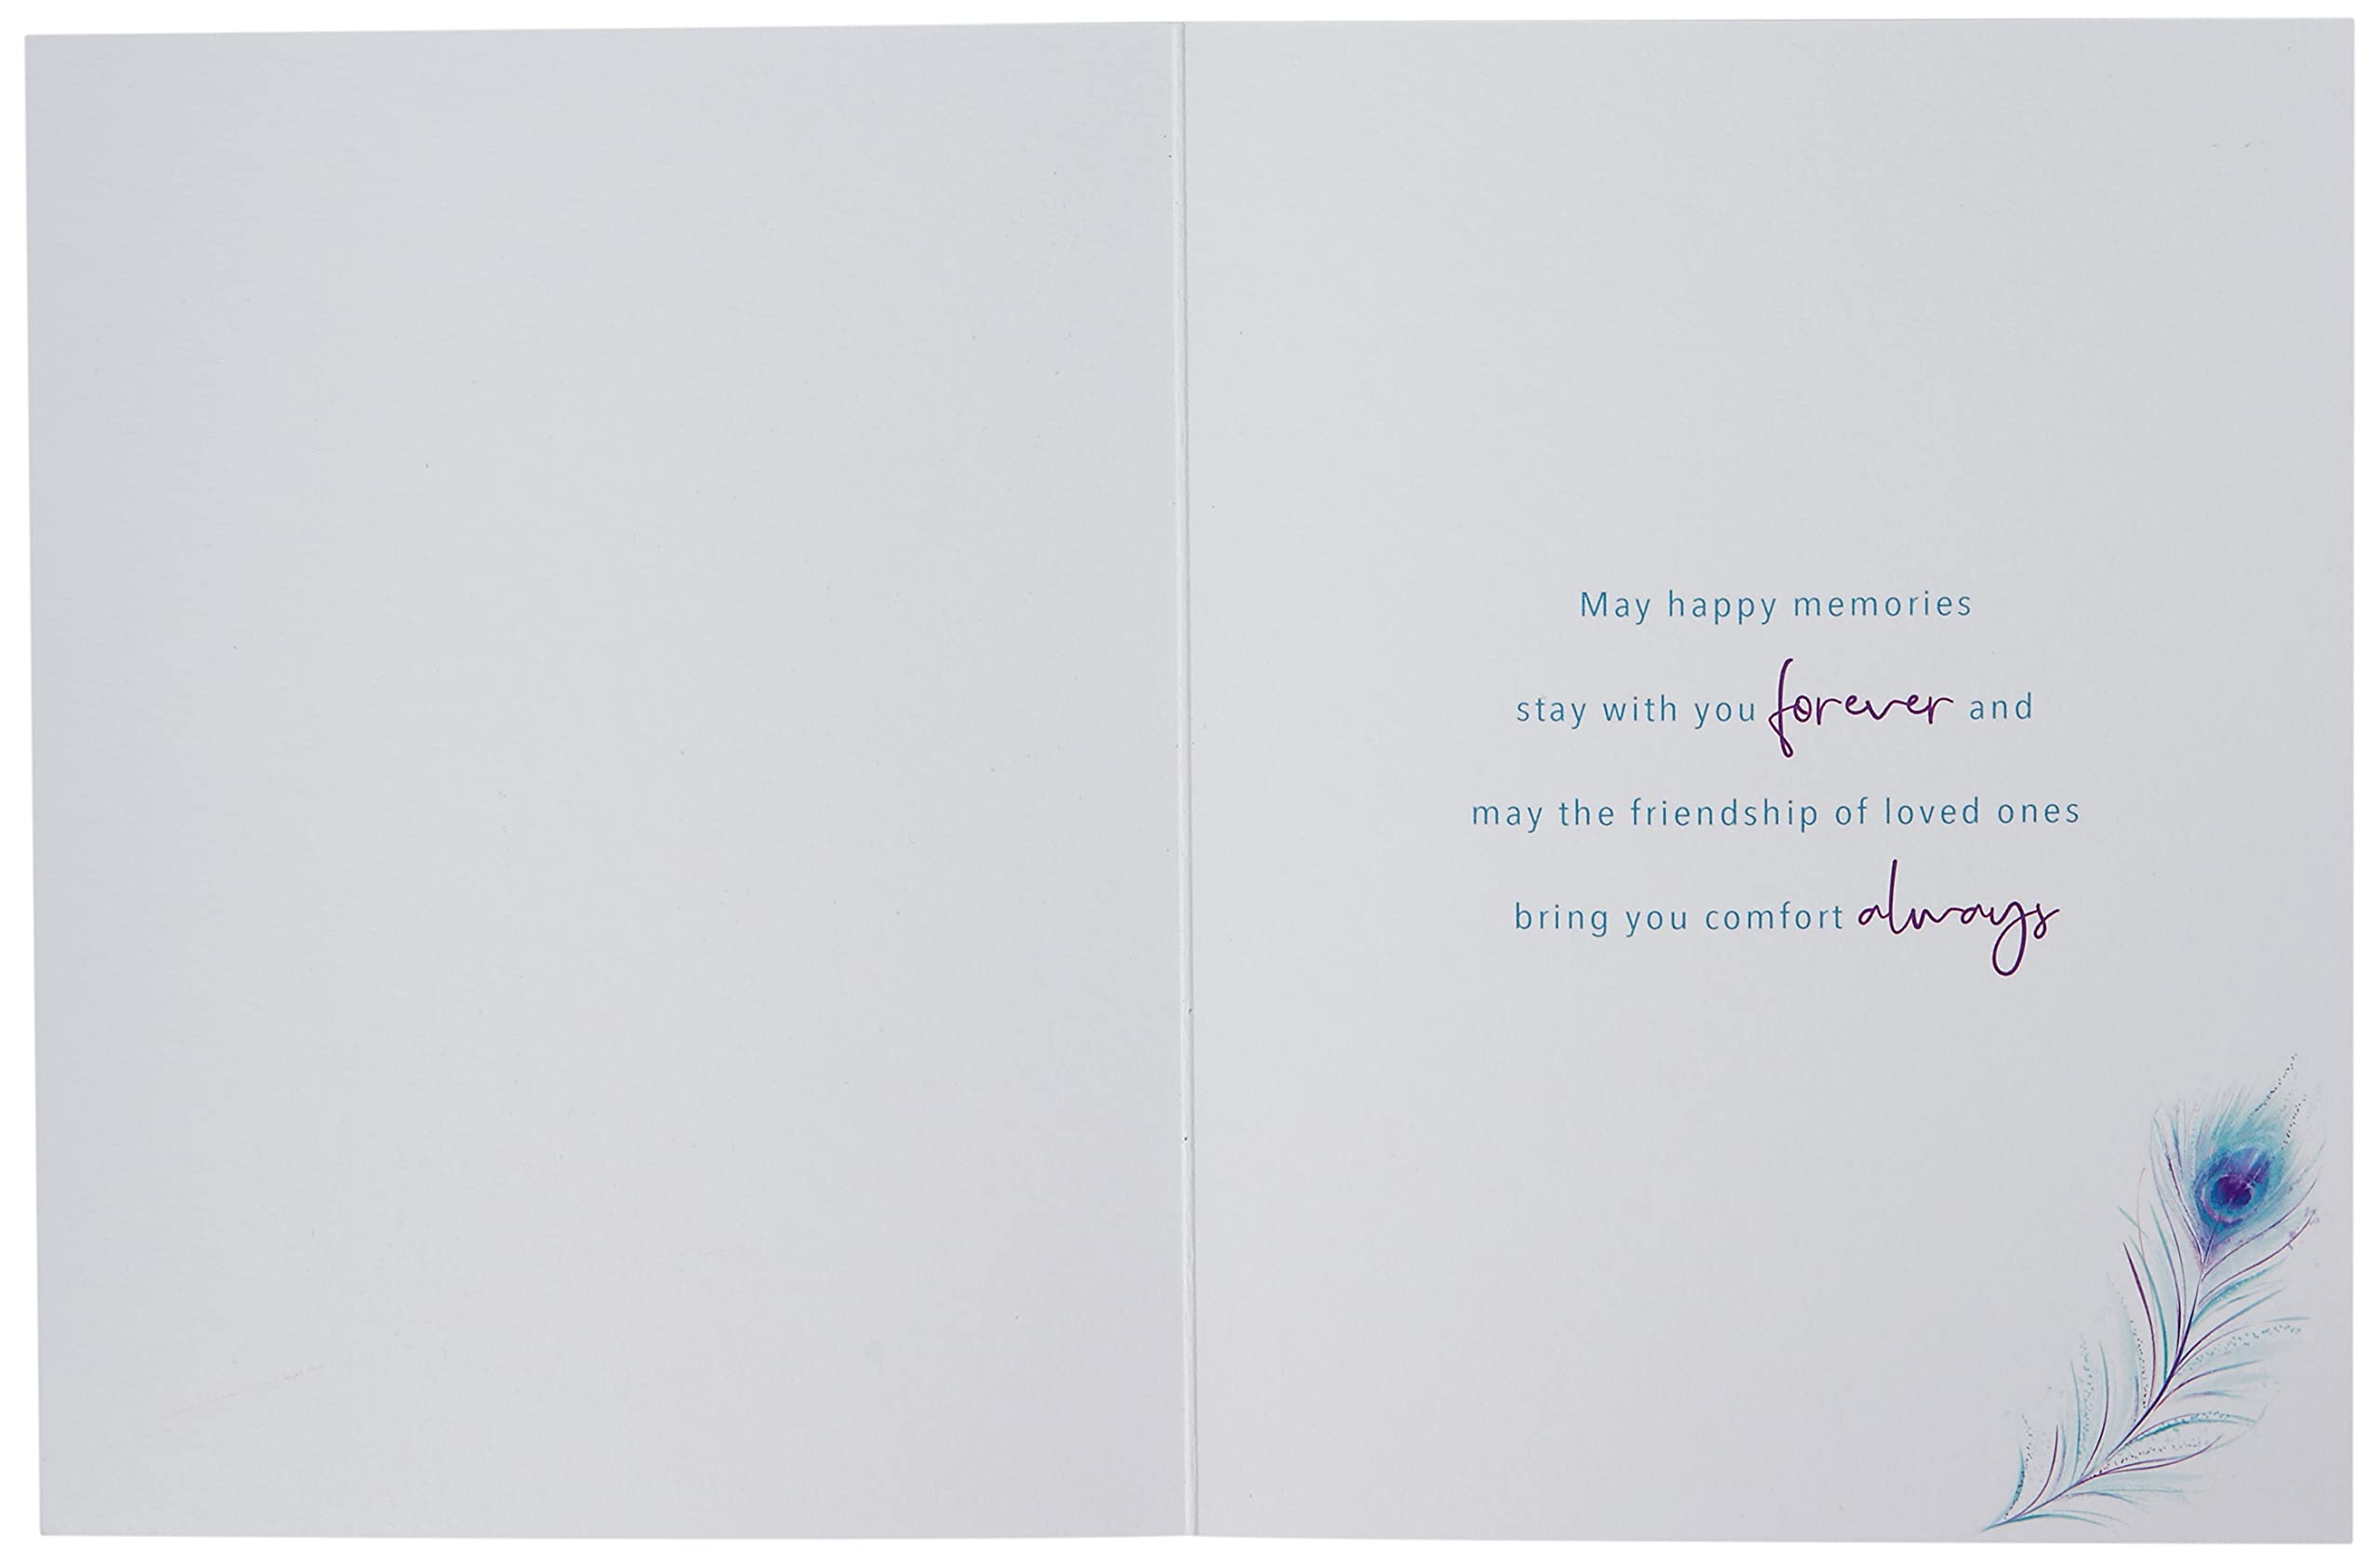 May happy memories
stay with you forever and
may the friendship of loved ones
bring you comfort always